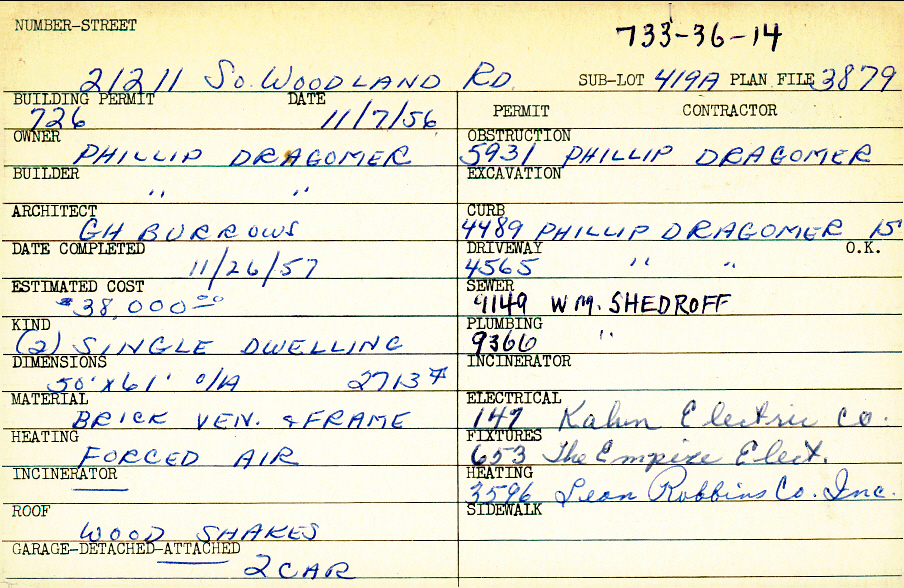 NUMBER-STREET
733-36-14
21211 So. WOODLAND RD. SUB-LOT 419A PLAN FILE 3879
BUILDING PERMIT DATE
726 11/7/56
PERMIT CONTRACTOR
OWNER
PHILLIP DRAGOMER
OBSTRUCTION
5931 PHILLIP DRAGOMER
BUILDER
" "
EXCAVATION
ARCHITECT
GH BURROWS
CURB
4489 PHILLIP DRAGOMER 15'
DATE COMPLETED
11/26/57
DRIVEWAY O.K.
4565 " "
ESTIMATED COST
$38,000.00
SEWER
9149 WM. SHEDROFF
KIND
(2) SINGLE DWELLING
PLUMBING
9366 "
DIMENSIONS
50' X 61' O/A 2713
INCINERATOR
MATERIAL
BRICK VEN. & FRAME
ELECTRICAL
147 Kahn Electric Co.
HEATING
FORCED AIR
FIXTURES
653 The Empire Elect.
INCINERATOR
HEATING
3596 Leon Robbins Co. Inc.
ROOF
WOOD SHAKES
SIDEWALK
GARAGE-DETACHED-ATTACHED
2 CAR